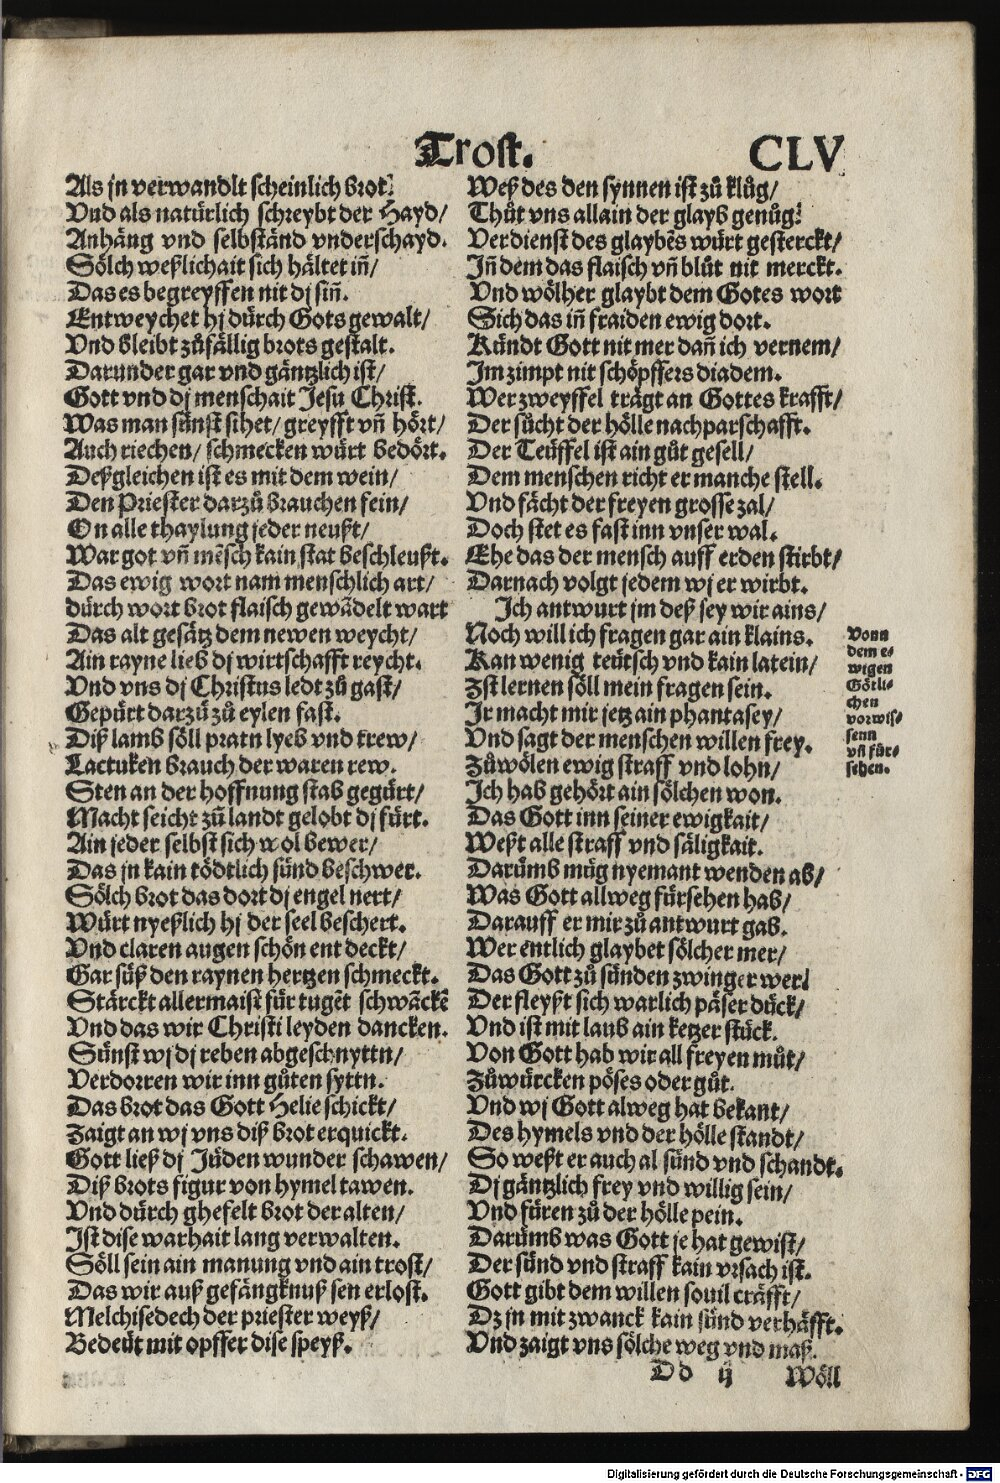 Trost. CLV
Als jn verwandlt scheinlich brot?
Vnd als natürlich schreybt der Hayd/
Anhäng vnd selbständ vnderschayd.
Sölch weßlichait sich hältet iñ/
Das es begreyffen nit dj siñ.
Entweychet hj dürch Gots gewalt/
Vnd bleibt zůfällig brots gestalt.
Darunder gar vnd gäntzlich ist/
Gott vnd dj menschait Jesu Christ.
Was man sünst sihet/ greyfft vñ hört/
Auch riechen/ schmecken würt bedört.
Deßgleichen ist es mit dem wein/
Den Priester darzů brauchen fein/
On alle thaylung jeder neußt/
War got vñ mẽsch kain stat beschleußt.
Das ewig wort nam menschlich art/
dürch wort brot flaisch gewãdelt wart
Das alt gesätz dem newen weycht/
Ain rayne lieb dj wirtschafft reycht.
Vnd vns dj Christus ledt zů gast/
Gepürt darzů zů eylen fast.
Diß lamb söll pratn lyeb vnd trew/
Lactuken brauch der waren rew.
Sten an der hoffnung stab gegürt/
Macht seicht zů landt gelobt dj fürt.
Ain jeder selbst sich wol bewer/
Das jn kain tödtlich sünd beschwer.
Sölch brot das dort dj engel nert/
Würt nyeßlich hj der seel beschert.
Vnd claren augen schön entdeckt/
Gar süß den raynen hertzen schmeckt.
Stärckt allermaist für tugẽt schwãckẽ
Vnd das wir Christi leyden dancken.
Sünst wj dj reben abgeschnyttn/
Verdorren wir inn gůten syttn.
Das brot das Gott Helie schickt/
Zaigt an wj vns diß brot erquickt.
Gott ließ dj Jüden wunder schawen/
Diß brots figur von hymel tawen.
Vnd dürch ghefelt brot der alten/
Ist dise warhait lang verwalten.
Söll sein ain manung vnd ain trost/
Das wir auß gefängknuß sen erlost.
Melchisedech der priester weyß/
Bedeüt mit opffer dise speyß.
Weß des den synnen ist zů klůg/
Thůt vns allain der glayb genůg?
Verdienst des glaybẽs würt gesterckt/
Jñ dem das flaisch vñ blůt nit merckt.
Vnd wölher glaybt dem Gotes wort
Sich das iñ fraiden ewig dort.
Kündt Gott nit mer dañ ich vernem/
Jm zimpt nit schöpffers diadem.
Wer zweyffel trägt an Gottes krafft/
Der sůcht der hölle nachparschafft.
Der Teüffel ist ain gůt gesell/
Dem menschen richt er manche stell.
Vnd fächt der freyen grosse zal/
Doch stet es fast inn vnser wal.
Ehe das der mensch auff erden stirbt/
Darnach volgt jedem wj er wirbt.
Jch antwurt jm deß sey wir ains/
Noch will ich fragen gar ain klains.
Kan wenig teütsch vnd kain latein/
Zst lernen söll mein fragen sein.
Jr macht mir jetz ain phantasey/
Vnd sagt der menschen willen frey.
Zůwölen ewig straff vnd lohn/
Jch hab gehört ain sölchen won.
Das Gott inn seiner ewigkait/
Weßt alle straff vnd säligkait.
Darümb müg nyemant wenden ab/
Was Gott allweg fürsehen hab/
Darauff er mir zů antwurt gab.
Wer entlich glaybet sölcher mer/
Das Gott zů sünden zwinger wer/
Der fleyßt sich warlich päser dück/
Vnd ist mit laub ain ketzer stück.
Von Gott hab wir all freyen můt/
Zůwürcken pöses oder gůt.
Vnd wj Gott alweg hat bekant/
Des hymels vnd der hölle standt/
So weßt er auch al sünd vnd schandt.
Dj gäntzlich frey vnd willig sein/
Vnd füren zů der hölle pein.
Darümb was Gott je hat gewist/
Der sünd vnd straff kain vrsach ist.
Gott gibt dem willen souil cräfft/
Dz jn mit zwanck kain sünd verhäfft.
Vnd zaigt vns sölche weg vnd maß.
Vonn
dem e-
wigen
Götli-
chen
vorwis-
senn
vñ für-
sehen.
Dd ij Wöll
Digitalisierung gefördert durch die Deutsche Forschungsgemeinschaft - DFG